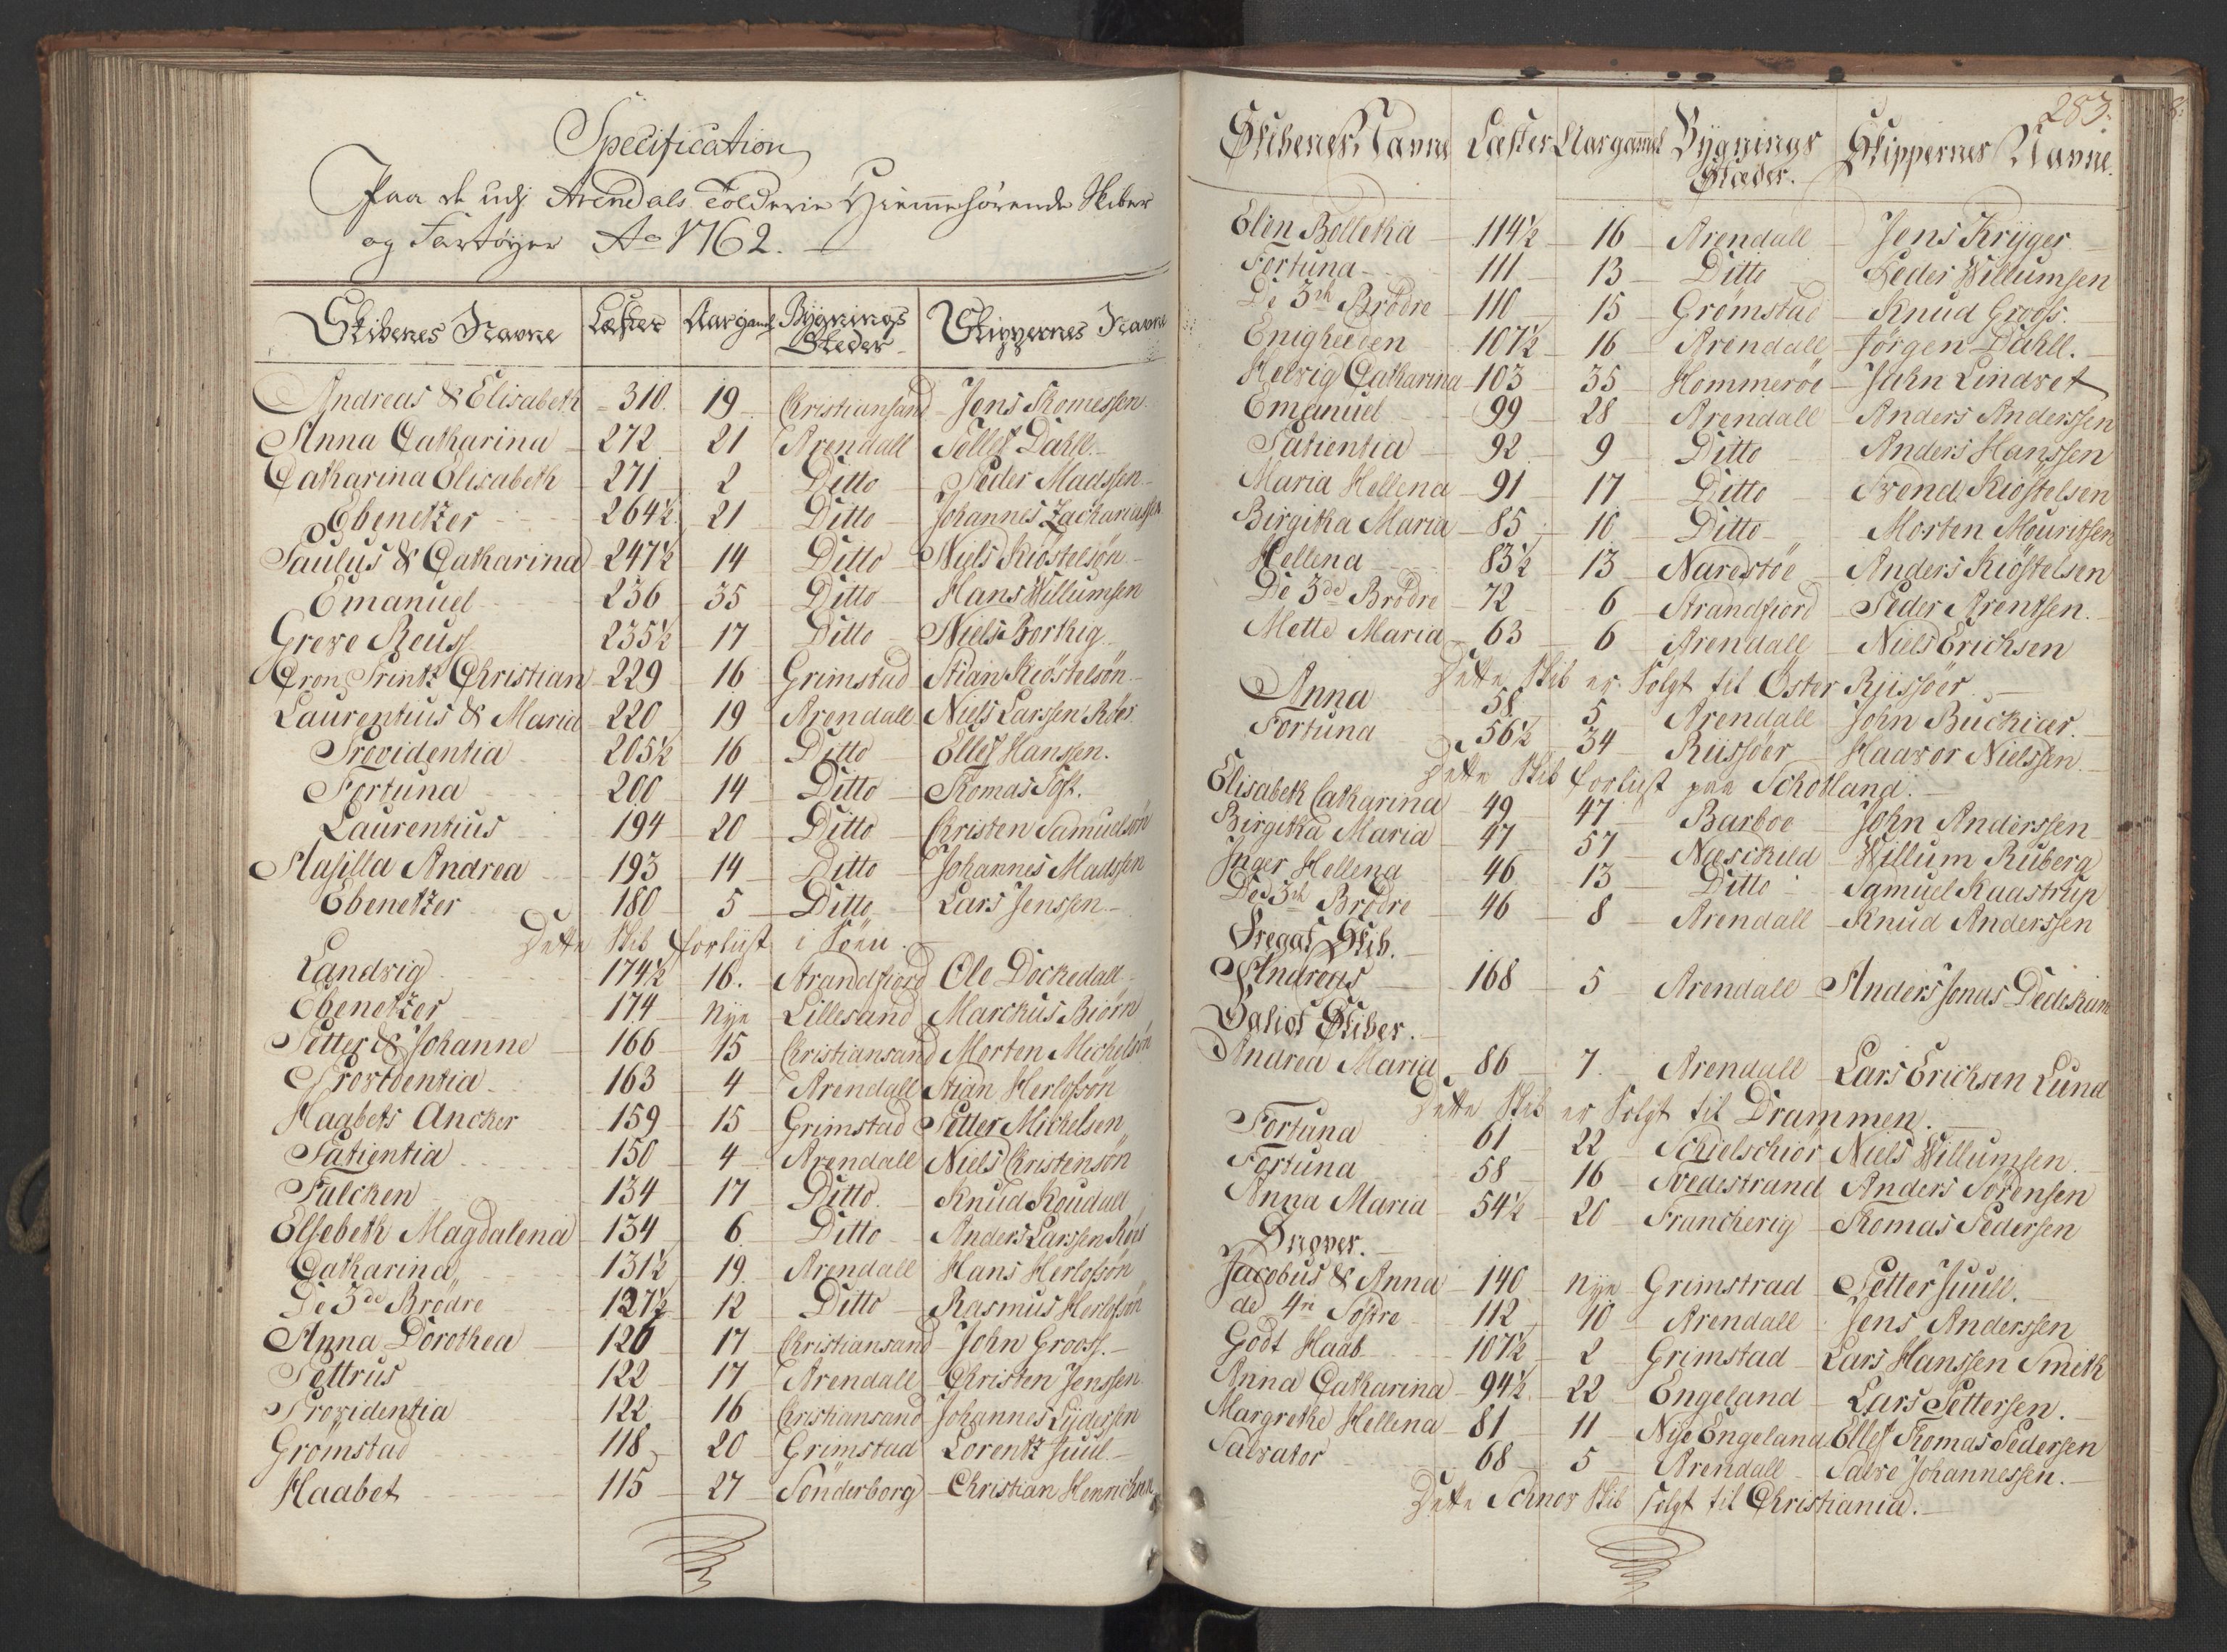 Specification
Paa de udj Arendals Tolderie Hiemmehørende Skiber
og Fartøyer Ao 1762.
Skibenes Navne Læster Aar gaml Bygnings Steder Skippernes Navne
Andreas & Elisabeth 310. 19 Christiansand Jens Thomessen
Anna Catharina 272 21 Arendall Tellef Dahll.
Catharina Elisabeth 271 2 Ditto Peder Madssen
Ebenetzer 264½ 21 Ditto Johannes Zachariassen
Paulus & Catharina 247½ 14 Ditto Niels Kiöstelsön
Emanuel 236 35 Ditto Hans Willumsen
Greve Reuss 235½ 17 Ditto Niels Borthig
Cron Printz Christian 229 16 Grimstad Stian Kiöstelsön
Laurentius & Maria 220 19 Arendall Niels Larssen Röes
Providentia 205½ 16 Ditto Ellef Hansen.
Fortuna 200 14 Ditto Thomas Toft.
Laurentius 194 20 Ditto Christen Samuelsön
Masilla Andrea 193 14 Ditto Johannes Madssen
Ebenetzer 180 5 Ditto Lars Jenssen
Dette Skib forliist i Söen.
Landvig 174½ 16. Strandfiord Ole Dockedall
Ebenetzer 174 nye Lillesand Marckus Biörn
Petter & Johanne 166 15 Christiansand Morten Michelsön
Providentia 163 4 Arendall Stian Herlofsön
Haabets Ancker 159 15 Grimstad Petter Michelsen
Patientia 150 4 Arendall Niels Christensön
Falcken 134 17 Ditto Knud Koudall
Elsebeth Magdalena 134 6 Ditto Anders Larssen Röes
Catharina 131½ 19. Arendall Hans Herlofsön
De 3de Brödre 127½ 12 Ditto Rasmus Herlofsön
Anna Dorothea 126 17 Christiansand John Grooss.
Pettrus 122 17 Arendall Christen Jenssen
Providentia 122 16 Christiansand Johannes Lydersen
Grömstad 118 20 Grimstad Lorentz Juul
Haabet 115 27 Sönderborg Christian Henrichsen
283.
Skibenes Navne Læster Aar gammel Bygnings Stæder. Skippernes Navne.
Elen Bolletha 114½ 16 Arendall Jens Kryger
Fortuna 111 13 Ditto Peder Willumsen
De 3de Brödre 110 15 Grömstad Knud Grooss.
Enigheeden 107½ 16 Arendall Jörgen Dahll.
Helvig Catharina 103 35 Hommeröe Jahn Lindvet
Emanuel 99 28 Arendall Anders Anderssen
Patientia 92 9 Ditto Anders Hanssen
Maria Hellena 91 17 Ditto Svend Kiöstelsen
Birgitha Maria 85 10 Ditto Morten Mouritsen
Hellena 83½ 13 Narestöe Anders Kiöstelsen
De 3de Brödre 72 6 Strandfiord Peder Arentsen.
Mette Maria 63 6 Arendall Niels Erichsen
Dette Skib er Solgt til Öster Riisöer
Anna 58 5 Arendall John Buckiær.
Fortuna 56½ 34 Riissöer Haavor Nielssen
Dette Skib forliist paa Schotland.
Elisabeth Catharina 49 47 Barboe John Anderssen
Birgitha Maria 47 57 Næschild Willum Ruberg
Inger Hellena 46 13 Ditto Samuel Kaastrup
De 3de Brödre 46 8 Arendall Knud Anderssen
Fregat Skib.
Andreas 168 5 Arendall Anders Jonas Dedekam
Galiot Skiber.
Andrea Maria 86 7. Arendall Lars Erichsen Lund
Dette Skib er Solgt til Drammen.
Fortuna 61 22 Schielschiör Niels Willumsen
Fortuna 58 16 Tvedestrand Anders Sörensen
Anna Maria 54½ 20 Francherig Thomas Pedersen
Snover.
Jacobus & Anna 140 nye Grimstrad Petter Juull.
de 4re Söstre 112 10 Arendall Jens Anderssen
Godt Haab 107½ 2 Grimstad Lars Hanssen Smith
Anna Catharina 94½ 22 Engeland Lars Pettersen.
Margrethe Hellena 81 11 Nye Engeland Ellef Thomas Pedersen
Salvator 68 5 Arendall Salve Johannessen.
Dette Schnov Skib Solgt til Christiania.